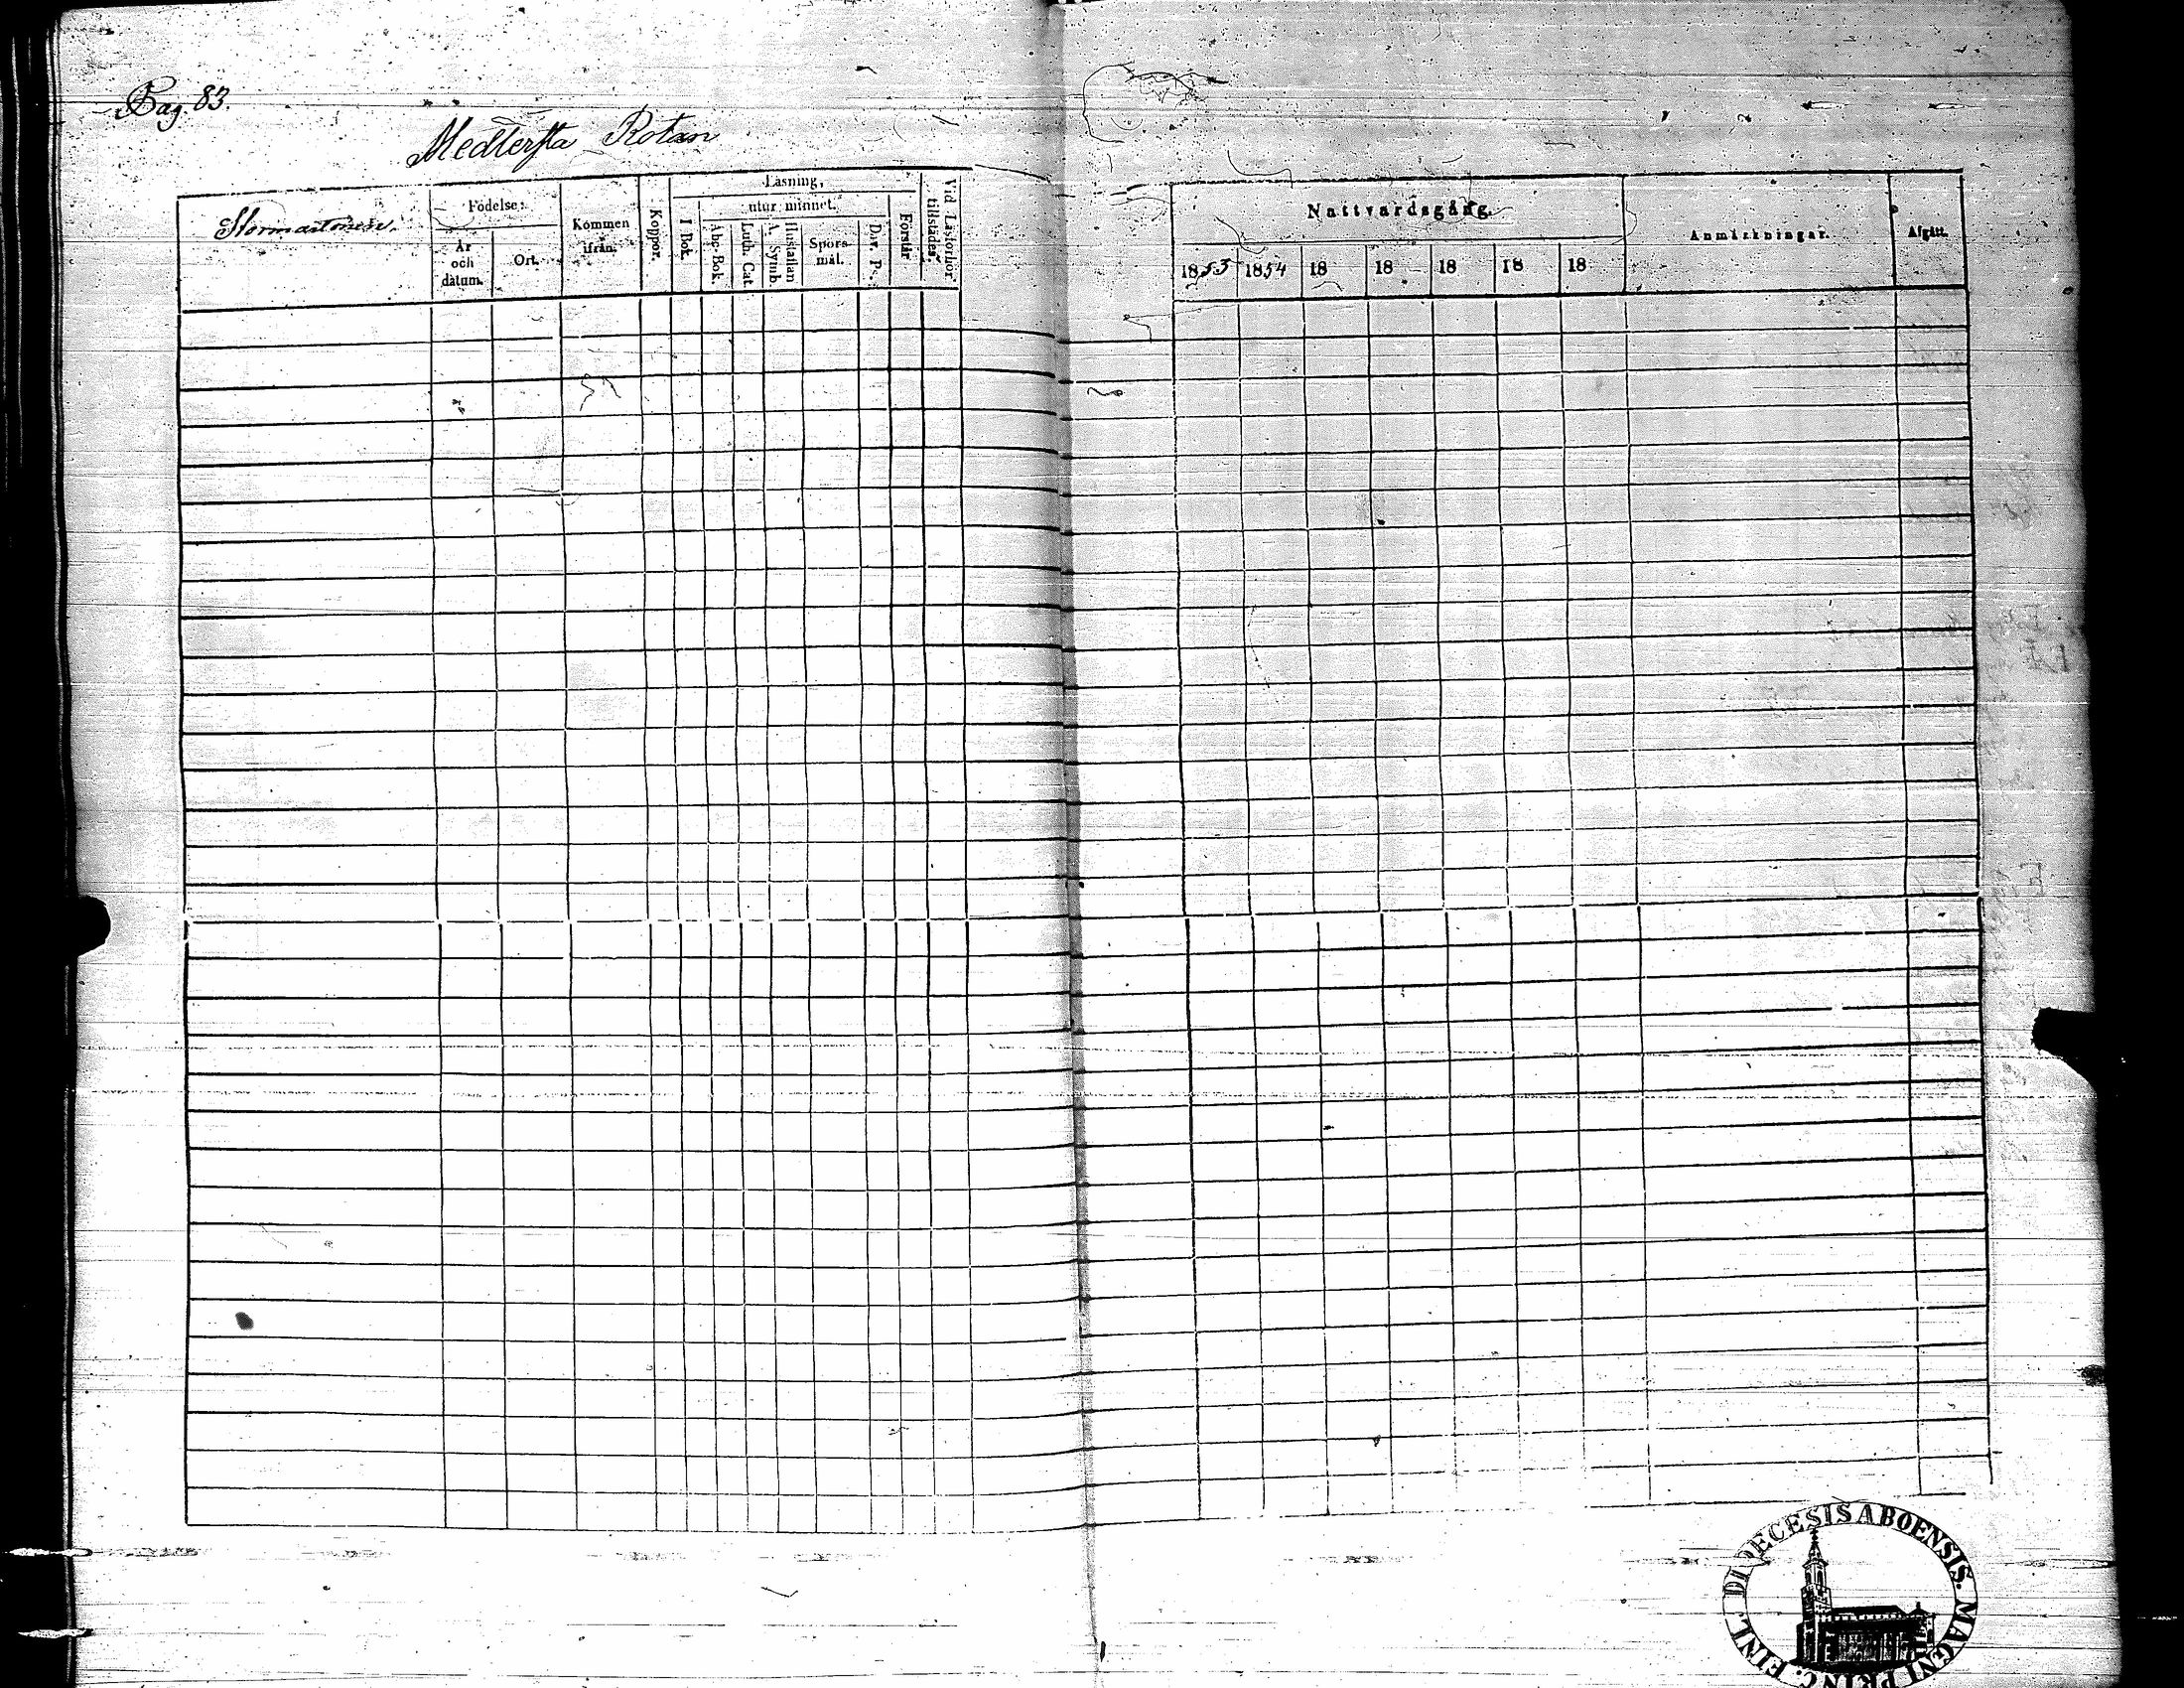 Pag. 83.
Medlersta Rotan
Stormartonen.
Födelse:
År och datum.
Ort.
Kommen ifrån.
Koppor.
Läsning,
I Bok.
utur minnet.
Abc-Bok.
Luth. Cat.
Hustaflan A. Symb.
Spörs mål.
Dav. Ps.
Förstår
Vid Läsförhör tillstädes.
Nattvardsgång.
1853 1854 18 18 18 18 18
Anmärkningar.
Afgått.
DIOECESIS ABOENSIS. MAGNI PRINC. FINL.